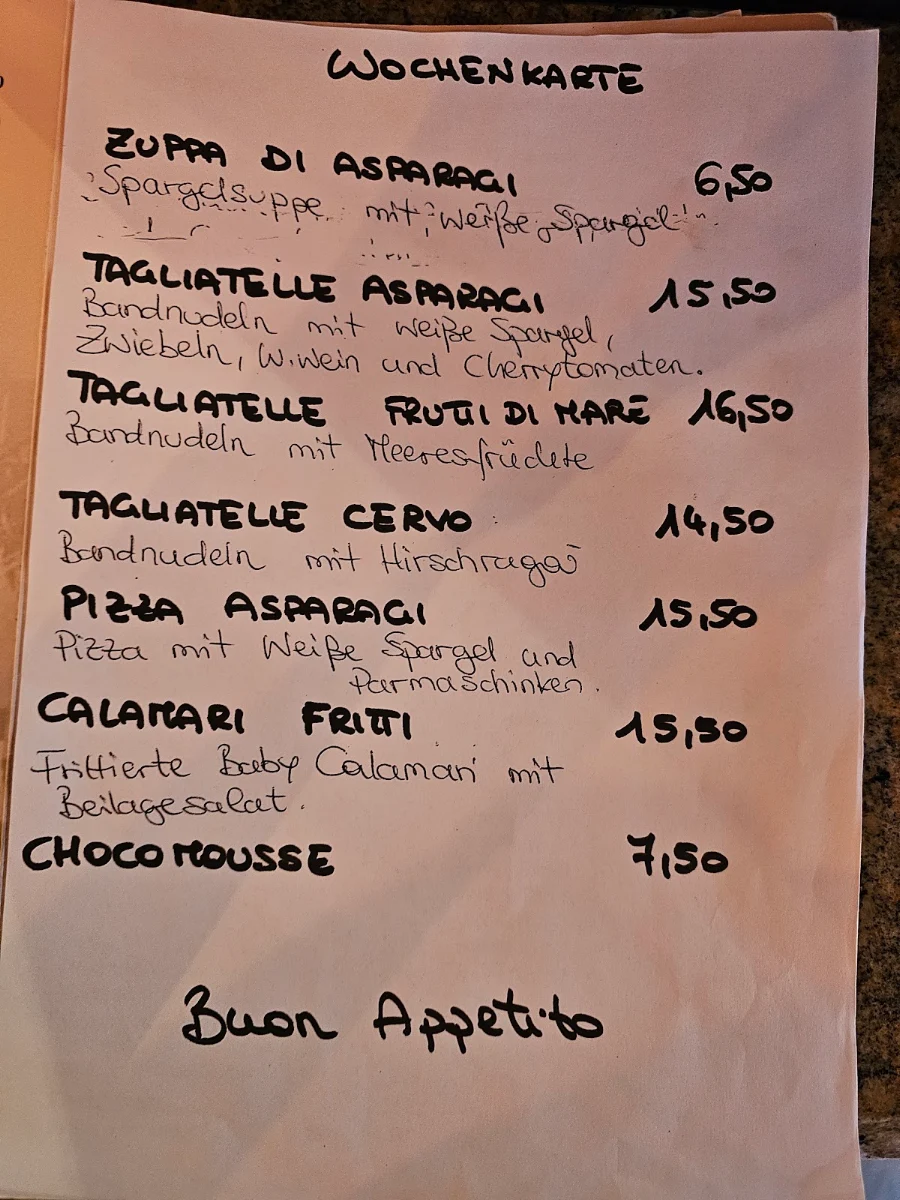 WOCHENKARTE
ZUPPA DI ASPARAGI 6,50
Spargelsuppe mit weiße Spargel
TAGLIATELLE ASPARAGI 15,50
Bandnudeln mit weiße Spargel,
Zwiebeln, W.wein und Cherrytomaten.
TAGLIATELLE FRUTTI DI MARE 16,50
Bandnudeln mit Meeresfrüchte
TAGLIATELLE CERVO 14,50
Bandnudeln mit Hirschragù
PIZZA ASPARAGI 15,50
Pizza mit Weiße Spargel und
Parmaschinken.
CALAMARI FRITTI 15,50
Frittierte Baby Calamari mit
Beilagesalat.
CHOCOMOUSSE 7,50
Buon Appetito